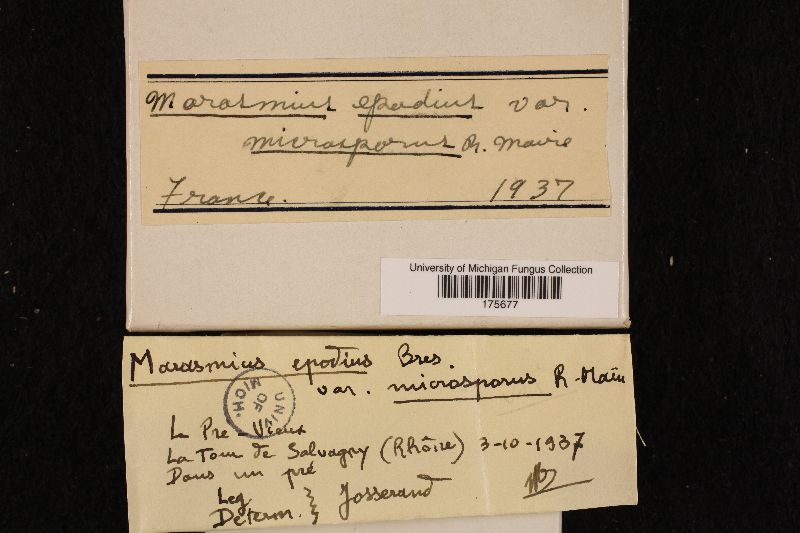 Marasmius epodius var.
microsporus R. Maire
France. 1937
University of Michigan Fungus Collection
175677
Marasmius epodius Bres.
var. microsporus R. Maire
UNIV. OF MICH.
Le Pré-Vieux
La Tour de Salvagny (Rhône) 3-10-1937
Dans un pré
Leg.
Determ. } Josserand